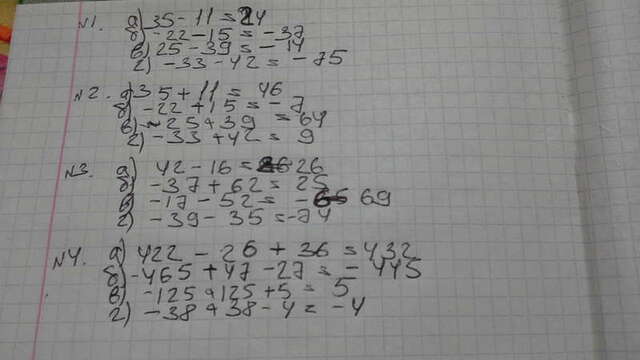 №1. а) 35 - 11 = 24
б) -22 - 15 = -37
в) 25 - 39 = -14
г) -33 - 42 = -75
№2. а) 35 + 11 = 46
б) -22 + 15 = -7
в) -25 + 39 = 64
г) -33 + 42 = 9
№3. а) 42 - 16 = 26
б) -37 + 62 = 25
в) -17 - 52 = - 69
г) -39 - 35 = -74
№4. а) 422 - 26 + 36 = 432
б) -465 + 47 - 27 = -445
в) -125 + 125 + 5 = 5
г) -38 + 38 - 4 = -4